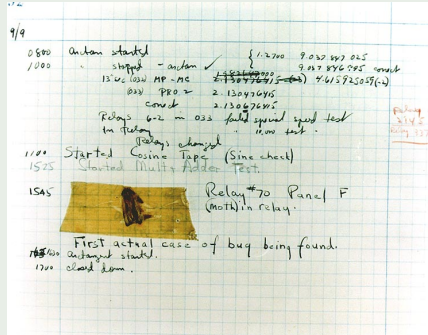 9/9
0800 arctan started
1000 " stopped - arctan ✓ { 1.2700 9.037 847 025
9.037 846 995 conect
13"uc (032) MP - MC 4.615925059(-2)
(033) PRO 2 2.130476415
conect 2.130676415
Relays 6-2 in 033 failed special speed test
in relay " 10,000 test .
Relays changed
1100 Started Cosine Tape (Sine check)
1525 Started Mult+Adder Test.
1545 Relay #70 Panel F
(moth) in relay.
First actual case of bug being found.
1630 arctangent started.
1700 closed down.